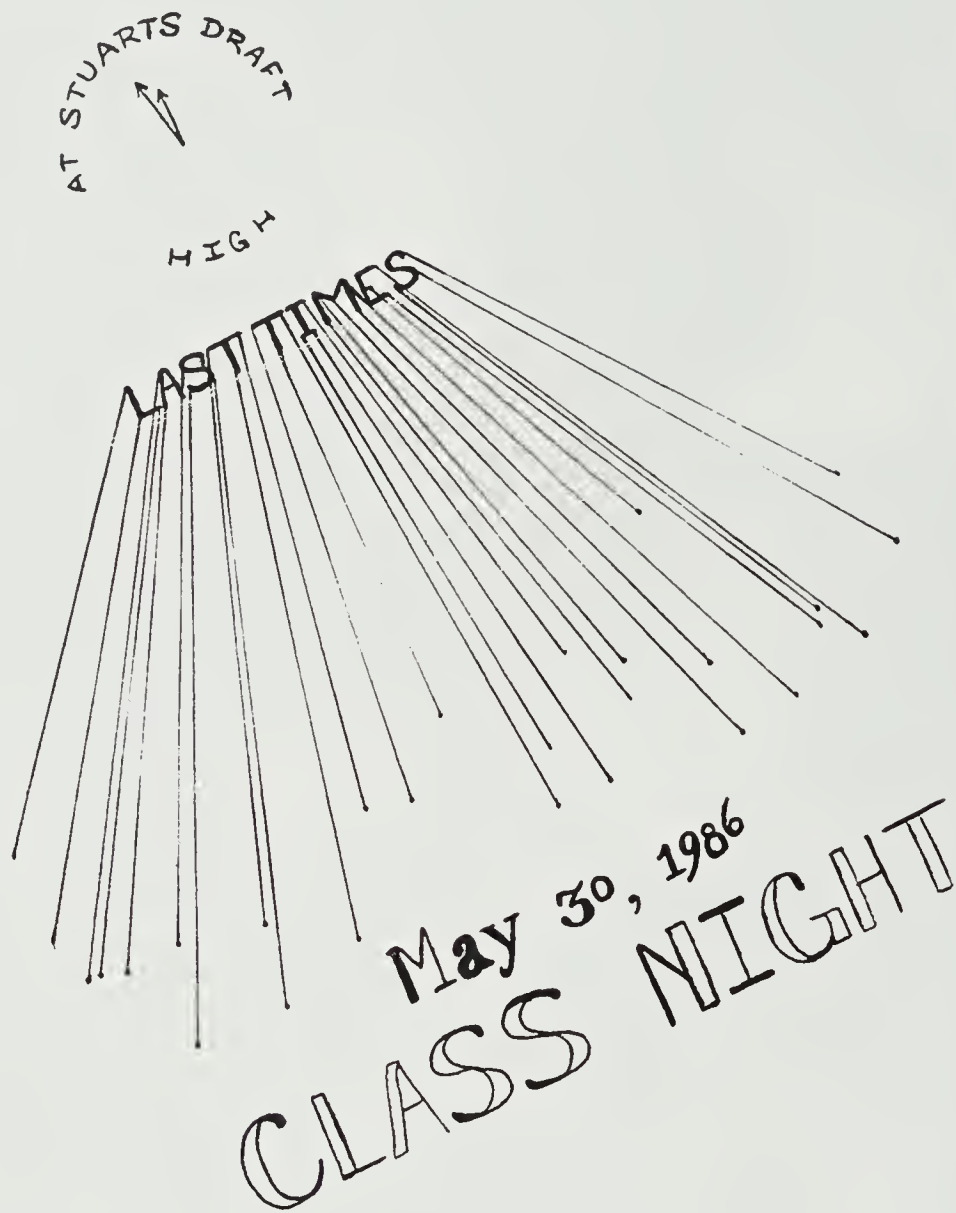 AT STUARTS DRAFT
HIGH
LAST TIMES
May 30, 1986
CLASS NIGHT